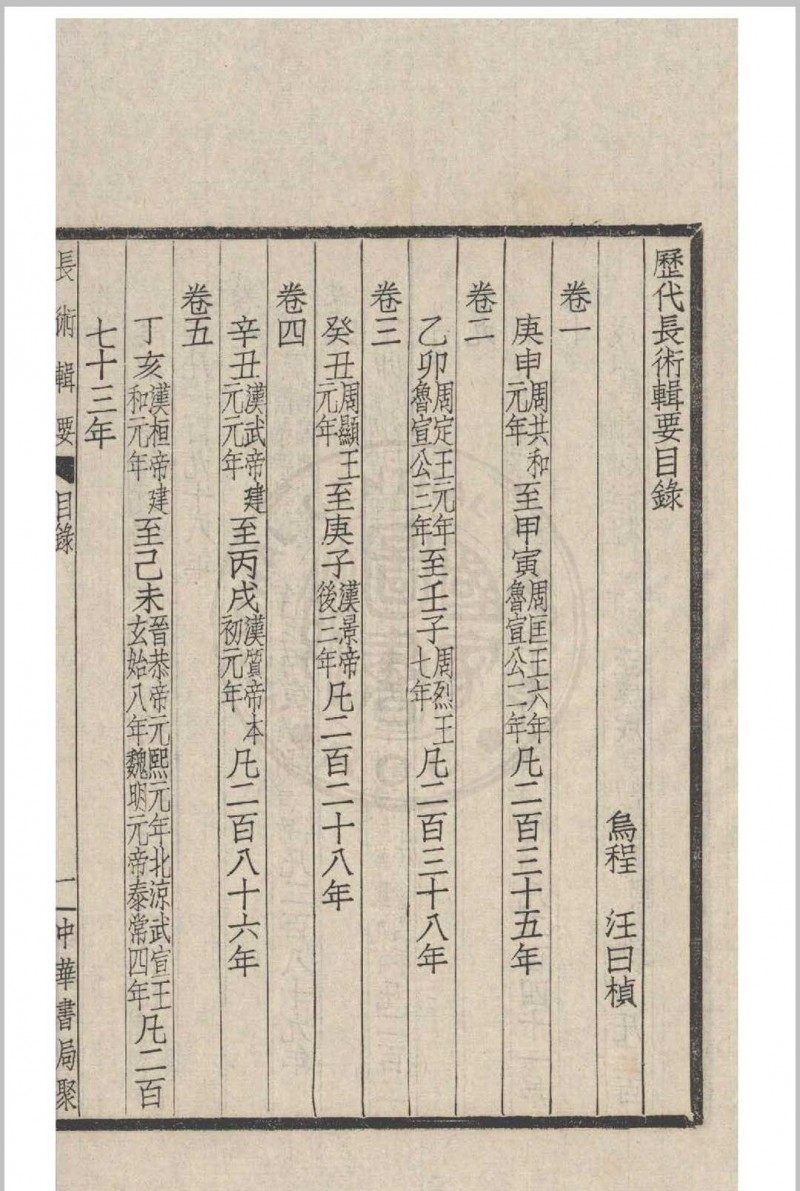 歷代長術輯要目錄
烏程 汪曰楨
卷一
庚申周共和元年至甲寅周匡王六年魯宣公二年凡二百三十五年
卷二
乙卯周定王元年魯宣公三年至壬子周烈王七年凡二百三十八年
卷三
癸丑周顯王元年至庚子漢景帝後三年凡二百二十八年
卷四
辛丑漢武帝建元元年至丙戌漢質帝本初元年凡二百八十六年
卷五
丁亥漢桓帝建和元年至己未晉恭帝元熙元年北涼武宣王玄始八年魏明元帝泰常四年凡二百
七十三年
長術輯要 目錄 一 中華書局聚